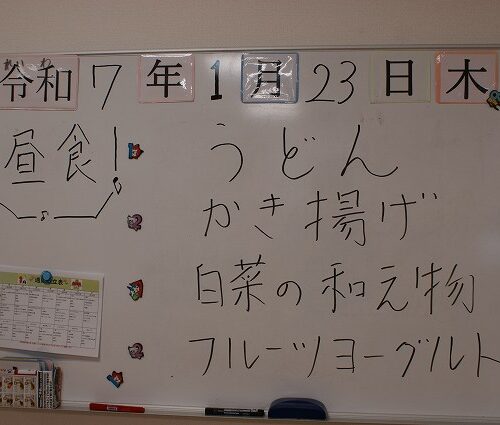 れいわ
令和7年1月23日木
昼食!
うどん
かき揚げ
白菜の和え物
フルーツヨーグルト